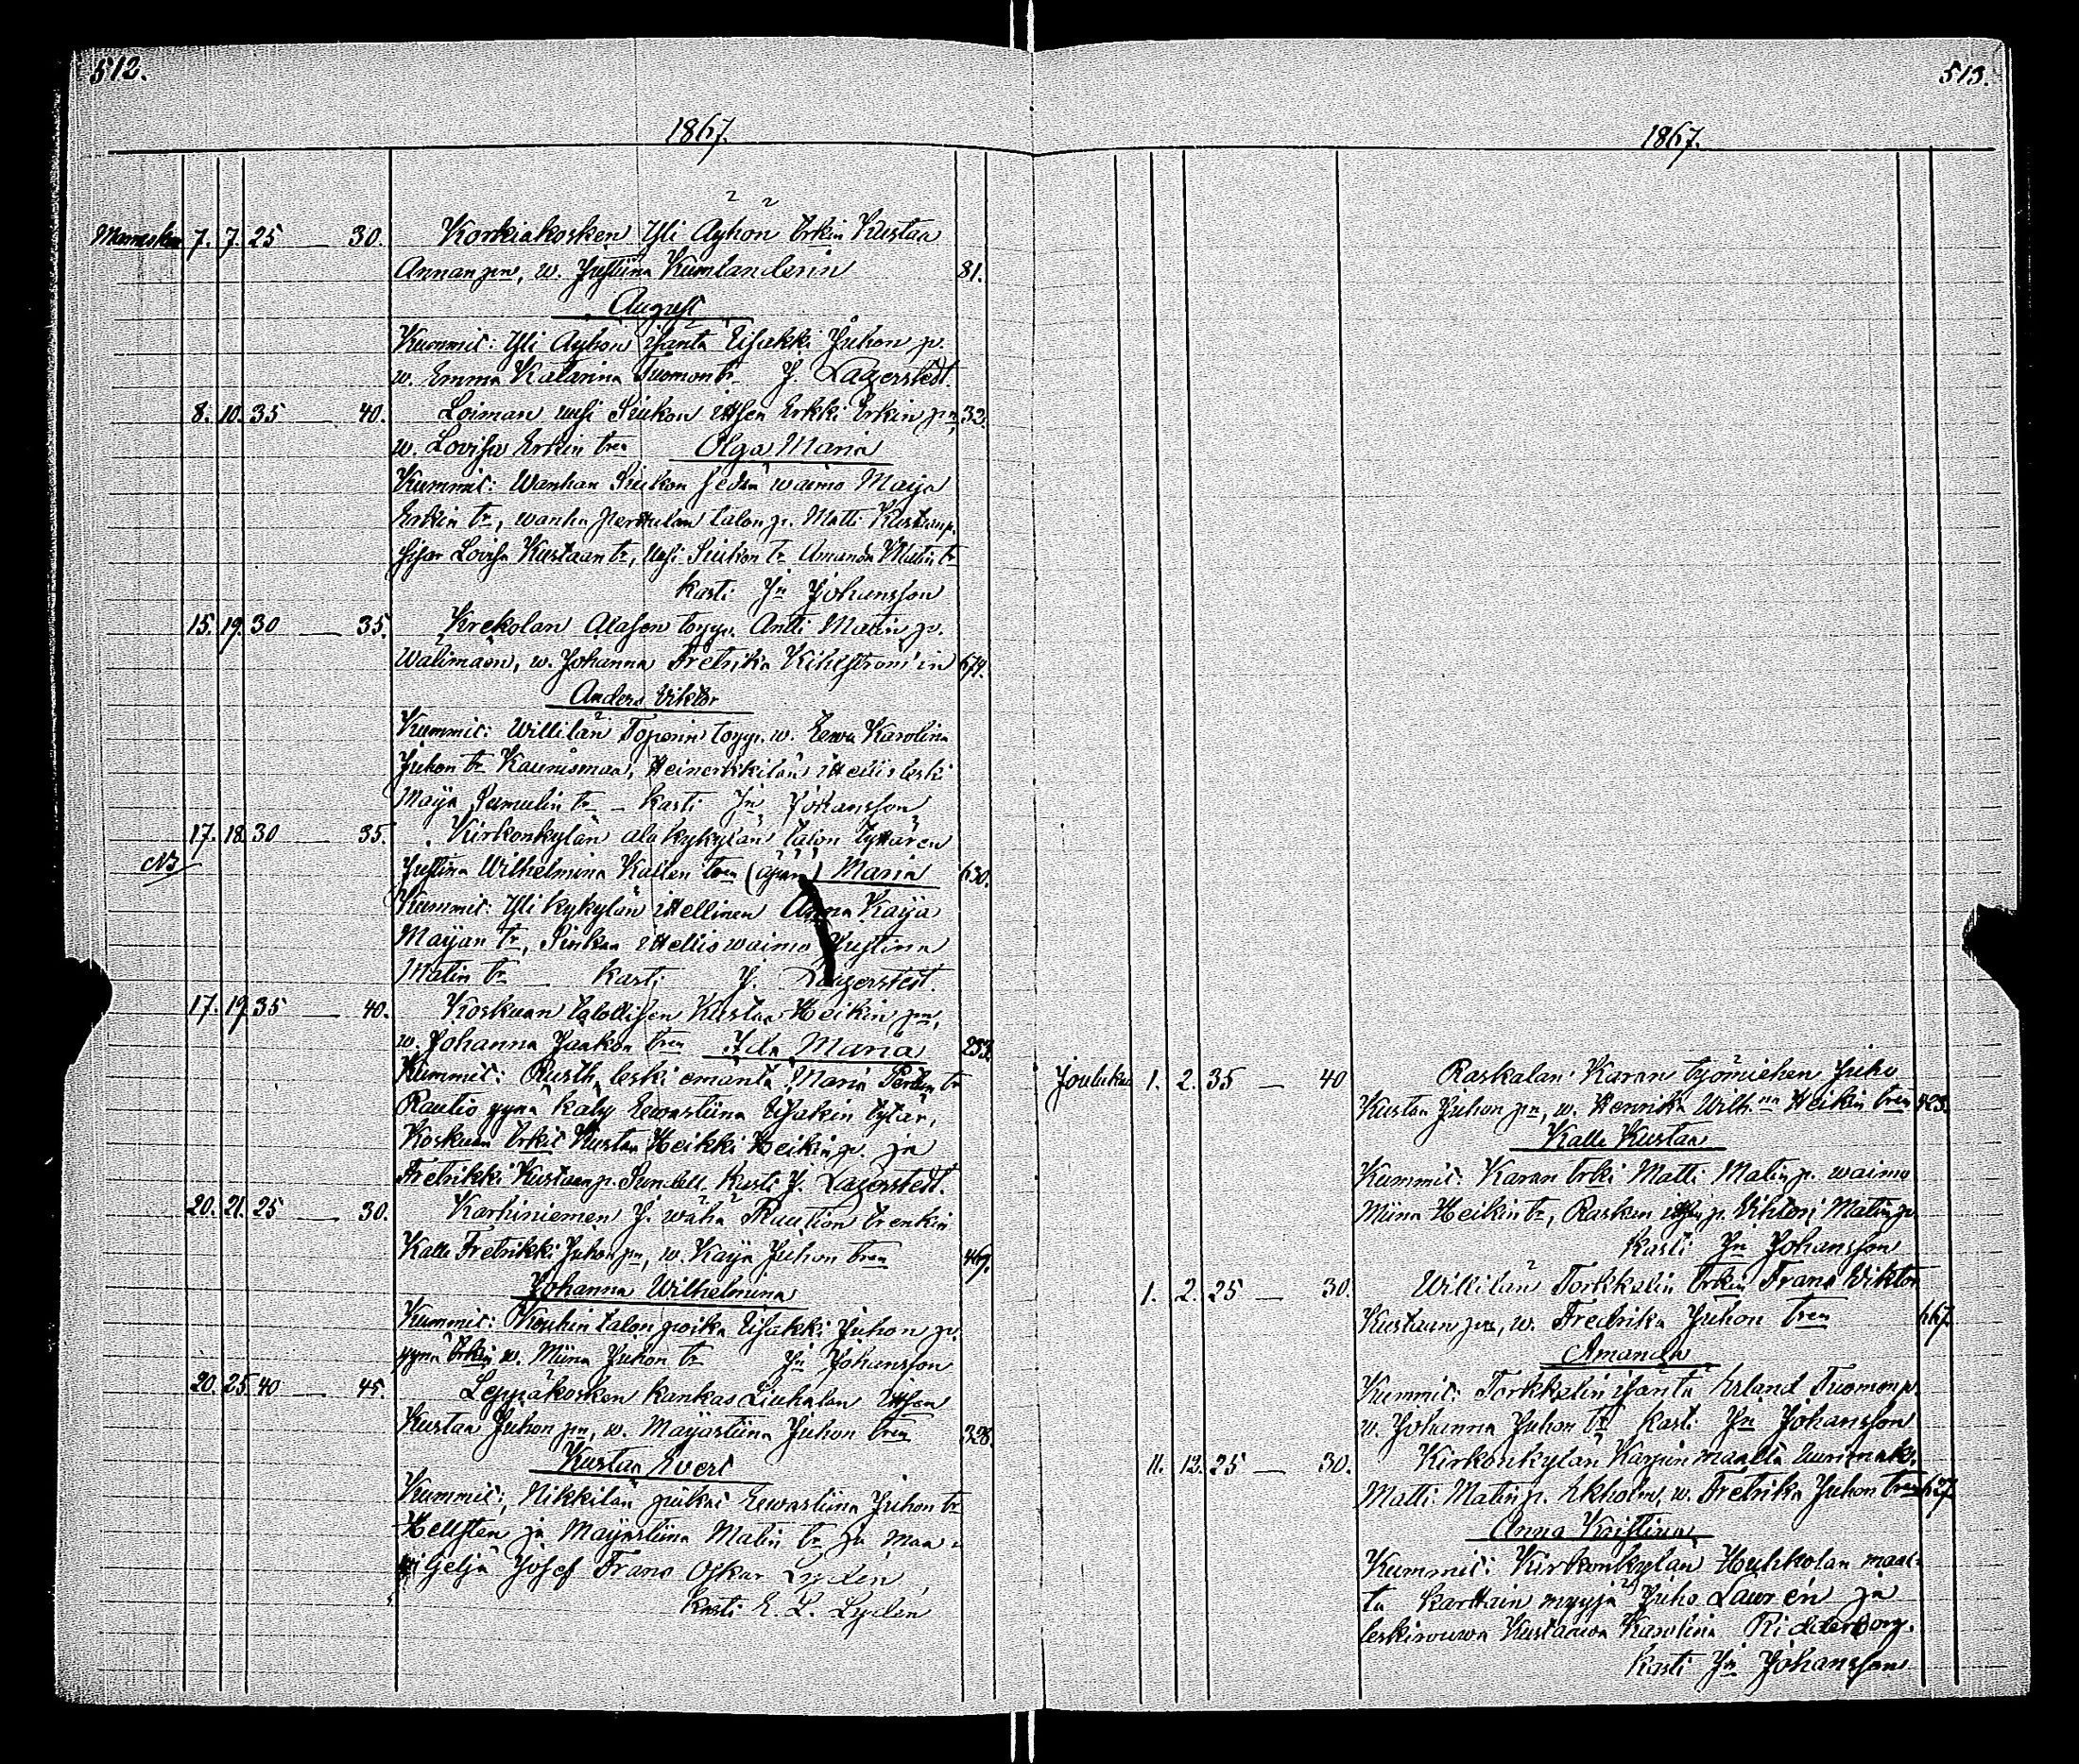 512.
1867.
7. 7. 25 — 30. Korkiakosken Yli Äyhön trkin Kustaa
Annan pn, w. Justiina Kumlanderin 81.
August
Kummit: Yli Äyhön isäntä Eisakki Juhon p.
w. Emma Katarina Tuomon tr J. Lagerstedt.
8. 10. 35 — 40. Loiman uusi Siukon ittsen Erkki Erkin pn, 32.
w. Lovisa Erkin tren Olga Maria
Kummit: Wanhan Siukon sedän waimo Maija
Erkin tr, wanha Perttulan talon p. Matti Kustaan p.
sisar Lovisa Kustaan tr, Uusi Siukon tr Amanda Matin tr
kasti Jn Johansson
15. 19. 30 — 35. Krekolan Alasen torpp. Antti Matin p.
Walimaan, w. Johanna Fretrika Kihlströmin 679.
Anders Viktor
Kummit: Willilän Toperin torpp. w. Eewa Karolina
Juhon tr Kaunismaa, ittellis leski
Maija Samulin tr — kasti Jn Johansson
17. 18. 30 — 35. Kirkonkylän ala kykylän talon tyttären
NB
Justina Wilhelmina Kallen tren (äpärä) Maria 630.
Kummit: Yli kykylän ittellinen Anna Kaija
Maijan tr, Sinkan ittellis waimo Justina
Matin tr — kasti J. Lagerstedt.
17. 19. 35 — 40. Koskuan talollisen Kustaa Heikin pn,
w. Johanna Jaakon tren Ida Maria 253.
Kummit: Rusth. leski emäntä Maria tr
Rautio pynä käly Eewastiina Eisakin tytär,
Koskuan trkit Kustaa Heikki Heikin p. ja
Fretrikki Kustaan p. Sundell. Kasti J. Lagerstedt.
20. 21. 25 — 30. Karhiniemen J. wähä Raution trenkin
Kalle Fretrikki Juhon pn, w. Kaija Juhon tren 469.
Johanna Wilhelmina
Kummit: talon poika Eisakki Juhon p.
trkin w. Miina Juhon tr Jn Johansson
20. 25. 40 — 45. Leppäkosken kankas Liuhalan ittsen
Kustaa Juhon pn, w. Maijastiina Juhon tren 328.
Kustaa Evert
Kummit: Nikkilän piikat Eewastiina Juhon tr
Hellsten ja Maijastiina Matin tr ja maan
wiljeljä Josef Frans Oskar Lydén
kasti E. L. Lydén
513.
1867.
Jouluku 1. 2. 35 — 40 Raskalan Karan työmiehen Juho
Kustaa Juhon pn, w. Henrika Wilh.na Heikin tren
Kalle Kustaa
Kummit: Karan trki Matti Matin p. waimo
Miina Heikin tr, Rasken p. Vihtori Matin p.
kasti Jn Johansson
1. 2. 25 — 30. Wilkilän Torkkelin trkin Frans Wiktor
Kustaan pn, w. Fredrika Juhon tren 667.
Amanda
Kummit: Torkkelin isäntä Erland Tuomon p.
w. Johanna Juhon tr kasti Jn Johansson
11. 12. 25 — 30. Kirkonkylän Karpin maalta
Matti Matin p. Ekholm, w. Fretrika Juhon tren 627
Anna Kristina
Kummit: Kirkonkylän Houhkolan maal-
ta Karttain myyjä Juho Laurén ja
leskirouwa Kustaawa Karolina Ridderborg.
kasti Jn Johansson